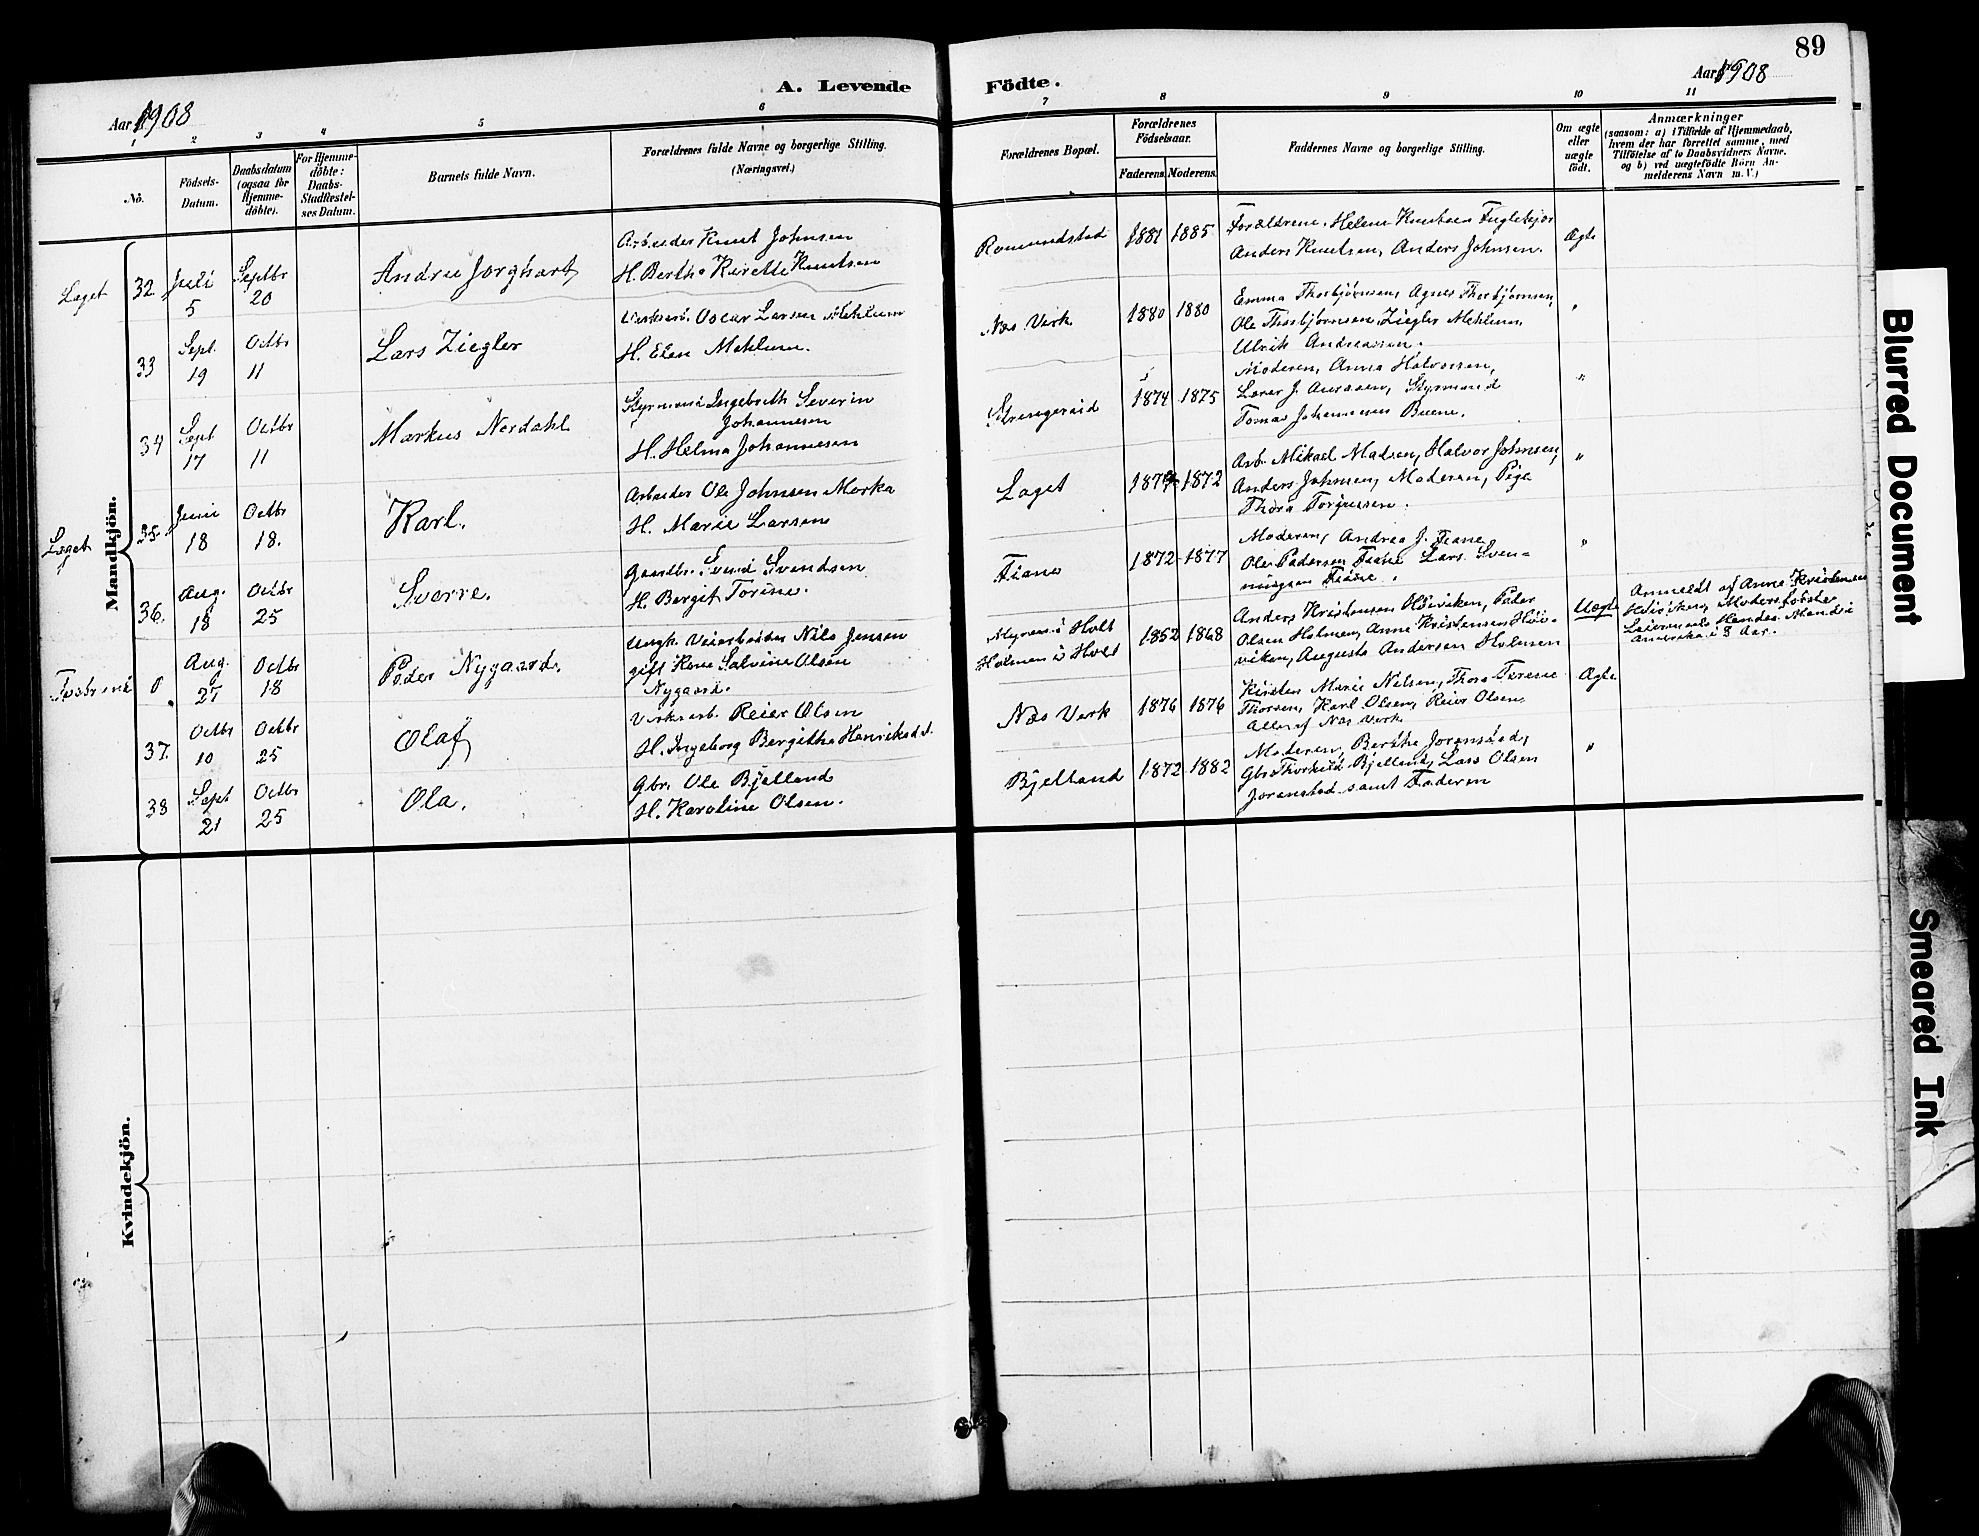 89
A. Levende Födte.
Aar 1908
Aar 1908
1
2
3
4
5
6
7
8
9
10
11
No.
Födsels-
Datum.
Daabsdatum
(ogsaa for
Hjemme-
döbte).
For Hjemme-
döbte:
Daabs-
Stadfæstel-
ses Datum.
Barnets fulde Navn.
Forældrenes fulde Navne og borgerlige Stilling.
(Næringsvei.)
Forældrenes Bopæl.
Forældrenes
Födselsaar.
Faderens.
Moderens.
Faddernes Navne og borgerlige Stilling.
Om ægte
eller
uægte
födt.
Anmærkninger
(saasom: a) i Tilfælde af Hjemmedaab,
hvem der har forrettet samme, med
Tilföielse af to Daabsvidners Navne.
og b) ved uægtefödte Börn An-
melderens Navn m. V.)
Mandkjön.
Laget
32
Juli
5
Septbr
20
Andreu Jorghart
Arbeider Knut Johnsen
H. Berthe Kirette Knutsen
Romundstad
1881
1885
Forældrene, Helene Knutsen Fuglekjær
Anders Knutsen, Anders Johnsen.
Ægte
33
Sept.
19
Octbr
11
Lars Ziegler
Oscar Larsen Mehlum
H. Elen Mehlum.
Næs Verk
1880
1880
Emma Thorbjørnsen, Agnes Thorbjørnsen,
Ole Thorbjørnsen, Ziegler Mehlum,
Ulrik Andreassen.
"
34
Sept
17
Octbr
11
Markus Nordahl
Styrmand Ingebreth Severin
Johannesen
H. Helma Johannesen
Strengereid
1874
1875
Moderen, Anna Halvorsen,
Lærer J. Aanesen, Styrmand
Tomas Johannesen Buene.
"
35
Juni
18
Octbr
18.
Karl.
Arbeider Ole Johnsen Morka
H. Marie Larsen
Laget
1872
Arb. Mikael Madsen, Halvor Johnsen,
Anders Johnsen, Moderen, Pige
Thora Torgussen.
"
Laget
36.
Aug.
18
Octbr
25
Sverre.
Gaardbr. Svend Svendsen
H. Bergit Torine.
Fiane
1872
1877
Moderen, Andrea J. Fiane,
Ole Pedersen Fiane Lars Sven-
ningsen Fiane.
"
0
Aug.
25
Octbr
18
Peder Nygaard.
Ungk. Veiarbeider Nils Jensen
gift Kone Salvine Olsen
Nygaard.
Myren i Holt
Holmen i Holt
1852
1868
Anders Kristensen Høiviken, Peder
Olsen Holmen, Anne Kristensen Høi-
viken, Augusta Andersen Holmen
Uægte
Anmeldt af Anne Kristensen
Høiviken, Moders
Hendes Mand i
Amerika i 8 Aar.
37.
Octbr
10
Octbr
25
Olaf
Verksarb. Reier Olsen
H. Ingeborg Bergithe Henriksd.
Næs Verk
1876
1876
Kirsten Marie Nilsen, Thora Terese
Thorsen, Karl Olsen, Reier Olsen,
Alle af Næs Verk
Ægte
38
Sept
21
Octbr
25
Ola.
Gbr. Ole Bjelland
H. Karoline Olsen.
Bjelland
1872
1882
Moderen, Berthe Jorenstad,
Gbr. Thorkild Bjelland, Lars Olsen
Jorenstad samt Faderen
"
Kvindekjön.
Blurred Document
Smeared Ink